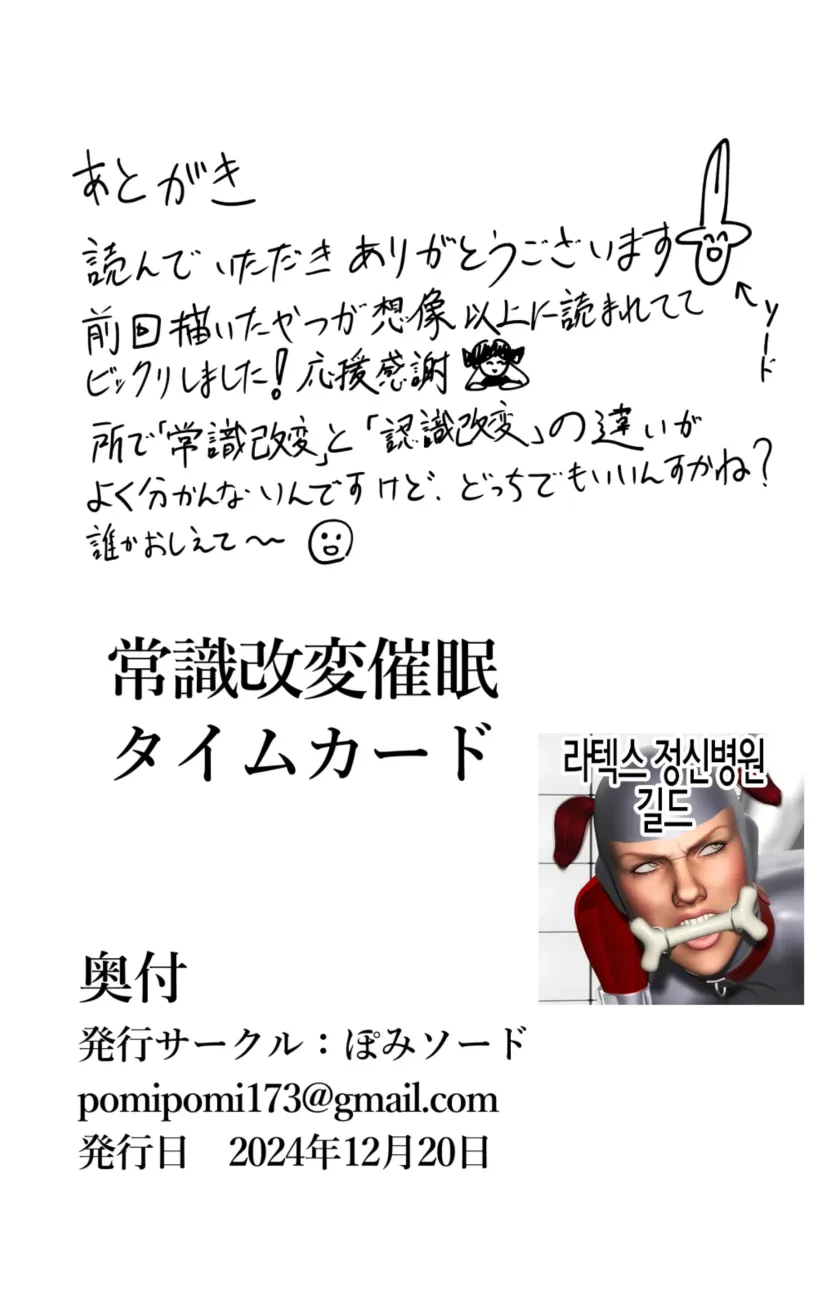 あとがき
読んでいただきありがとうございます
ソード
前回描いたやつが想像以上に読まれてて
ビックリしました!応援感謝
所で「常識改変」と「認識改変」の違いが
よく分かんないんですけど、どっちでもいいんすかね?
誰かおしえて〜
常識改変催眠
タイムカード
라텍스 정신병원
길드
奥付
発行サークル：ぽみソード
pomipomi173@gmail.com
発行日　2024年12月20日